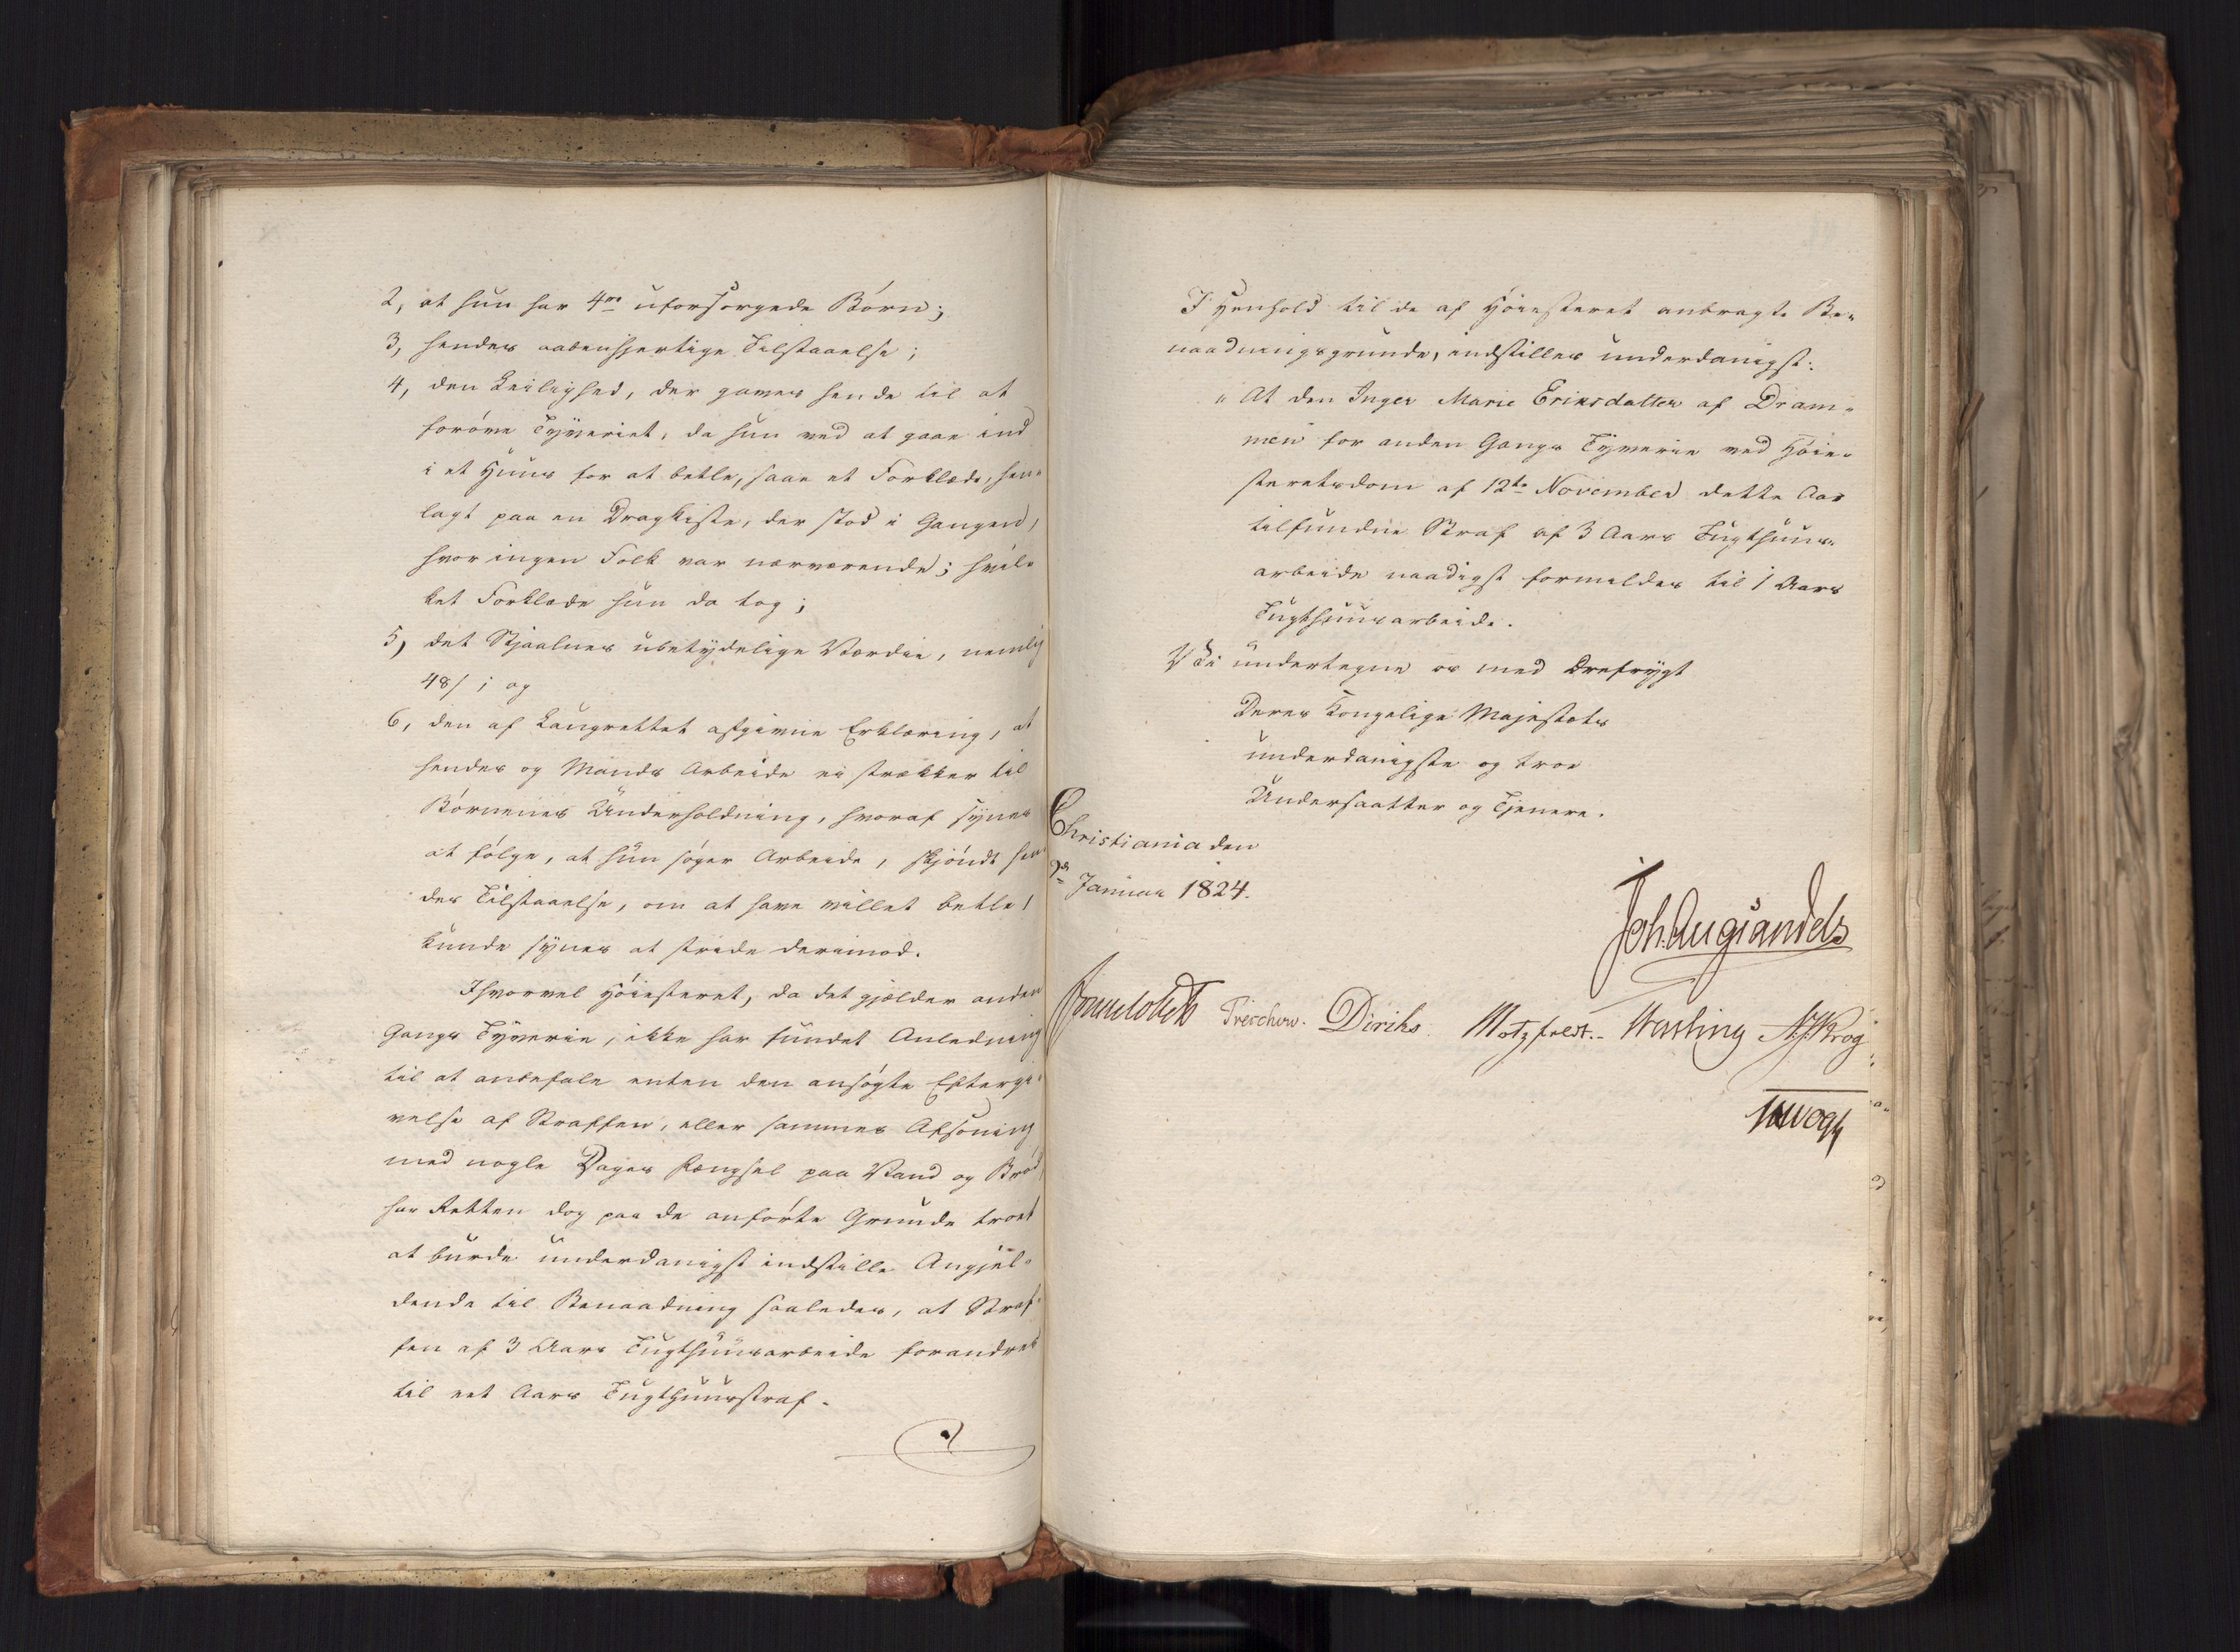 2, at hun har 4re uforsørgede Børn;
3, hendes aabenhjertige Tilstaaelse;
4, den Leilighed, der gaves hende til at
forøve Tyveriet, da hun ved at gaae ind
i et Huus for at betle, saae et Forklæde, hen-
lagt paa en Dragkiste, der stod i Gangen,
hvor ingen Folk var nærværende; hvil-
ket Forklæde hun da tog;
5, det Stjaalnes ubetydelige Værdie, nemlig
48 ß; og
6, den af Laugrettet afgivne Erklæring, at
hendes og Mands Arbeide ei strækker til
Børnenes Underholdning, hvoraf synes
at følge, at hun søger Arbeide, skjøndt hen-
des Tilstaaelse, om at have villet betle,
kunde synes at stride derimod.
Ihvorvel Høiesteret, da det gjælder anden
Gangs Tyverie, ikke har fundet Anledning
til at anbefale enten den ansøgte Eftergi-
velse af Straffen, eller sammes Afsoning
med nogle Dages Fængsel paa Vand og Brød,
har Retten dog paa de anførte Grunde troet
at burde underdanigst indstille Angjel-
dende til Benaadning saaledes, at Straf-
fen af 3 Aars Tugthuusarbeide forandres
til eet Aars Tugthuusstraf.
I Henhold til de af Høiesteret anbragte Be-
naadningsgrunde, indstilles underdanigst:
"At den Inger Marie Eriksdatter af Dram-
men for anden Gangs Tyverie ved Høie-
steretsdom af 12te November dette Aar
tilfundne Straf af 3 Aars Tugthuus-
arbeide naadigst formildes til 1 Aars
Tugthuusarbeide.
Vi undertegne os med Ærefrygt
Deres Kongelige Majestæts
underdanigste og troe
Undersaatter og Tjenere.
Christiania den
Januar 1824.
Joh. Aug Sandels
Treschow. Diriks Motzfeldt. N. J. Krog
Vogt